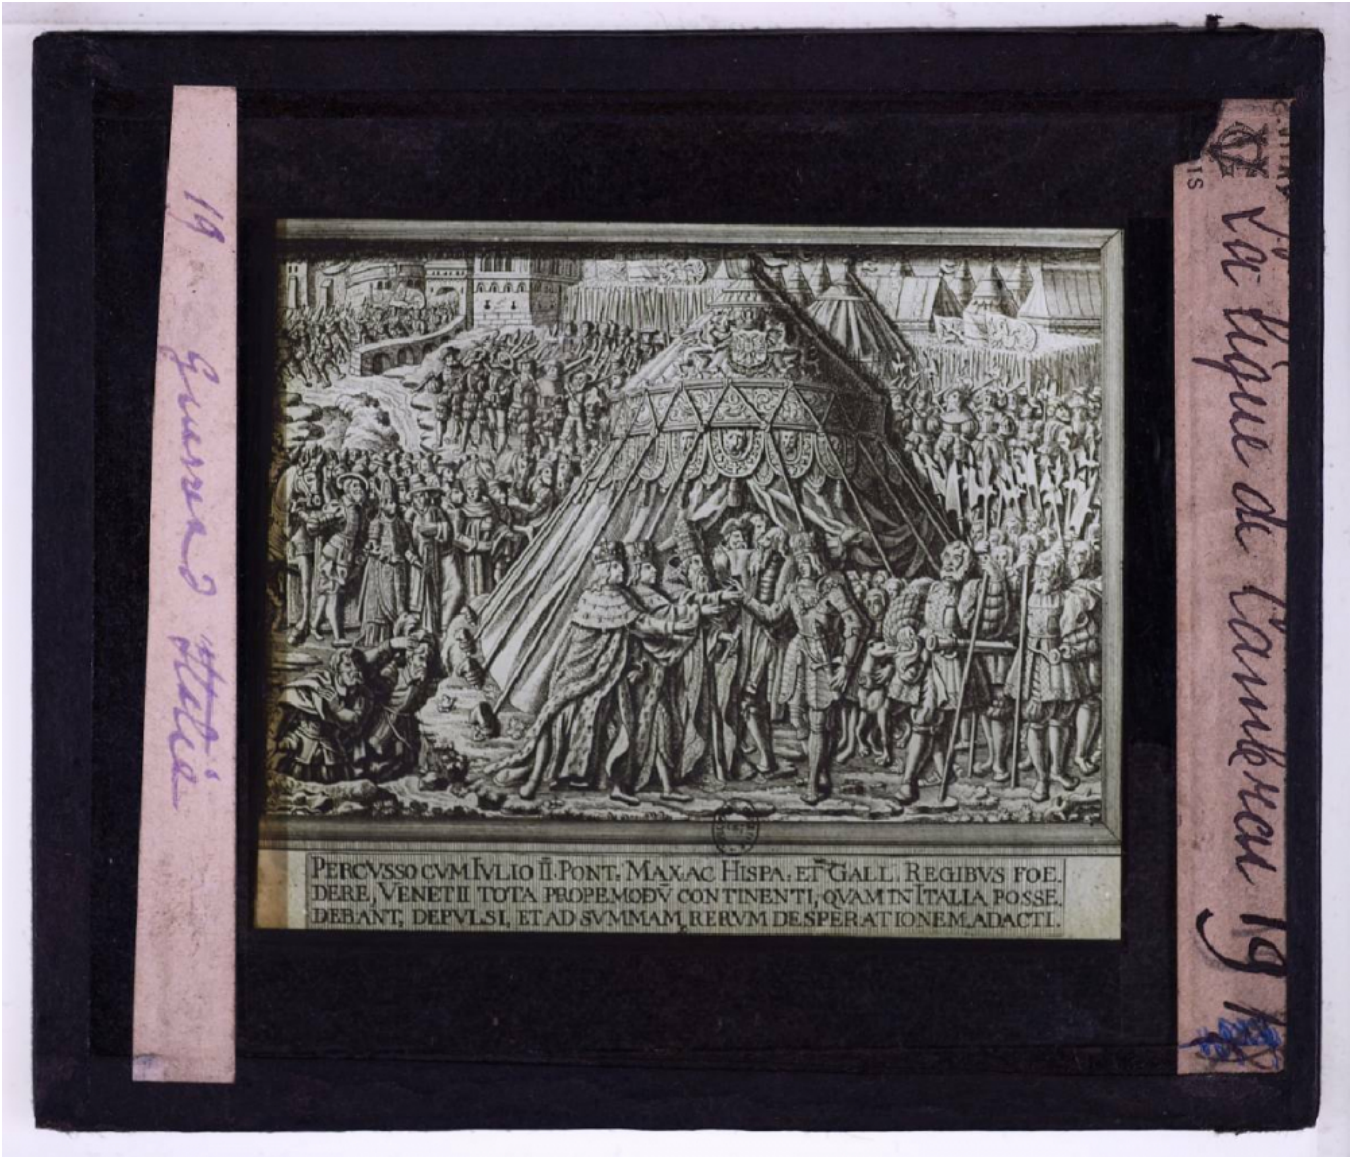 19
Guerres d'Italie
PERCVSSO CVM IVLIO II. PONT. MAX. AC HISPA: ET GALL. REGIBVS FOE.
DERE, VENETII TOTA PROPEMODV̄ CONTINENTI, QVAM IN ITALIA POSSE.
DEBANT, DEPVLSI, ET AD SVMMAM RERVM DESPERATIONEM ADACTI.
La ligue de Cambrai 19